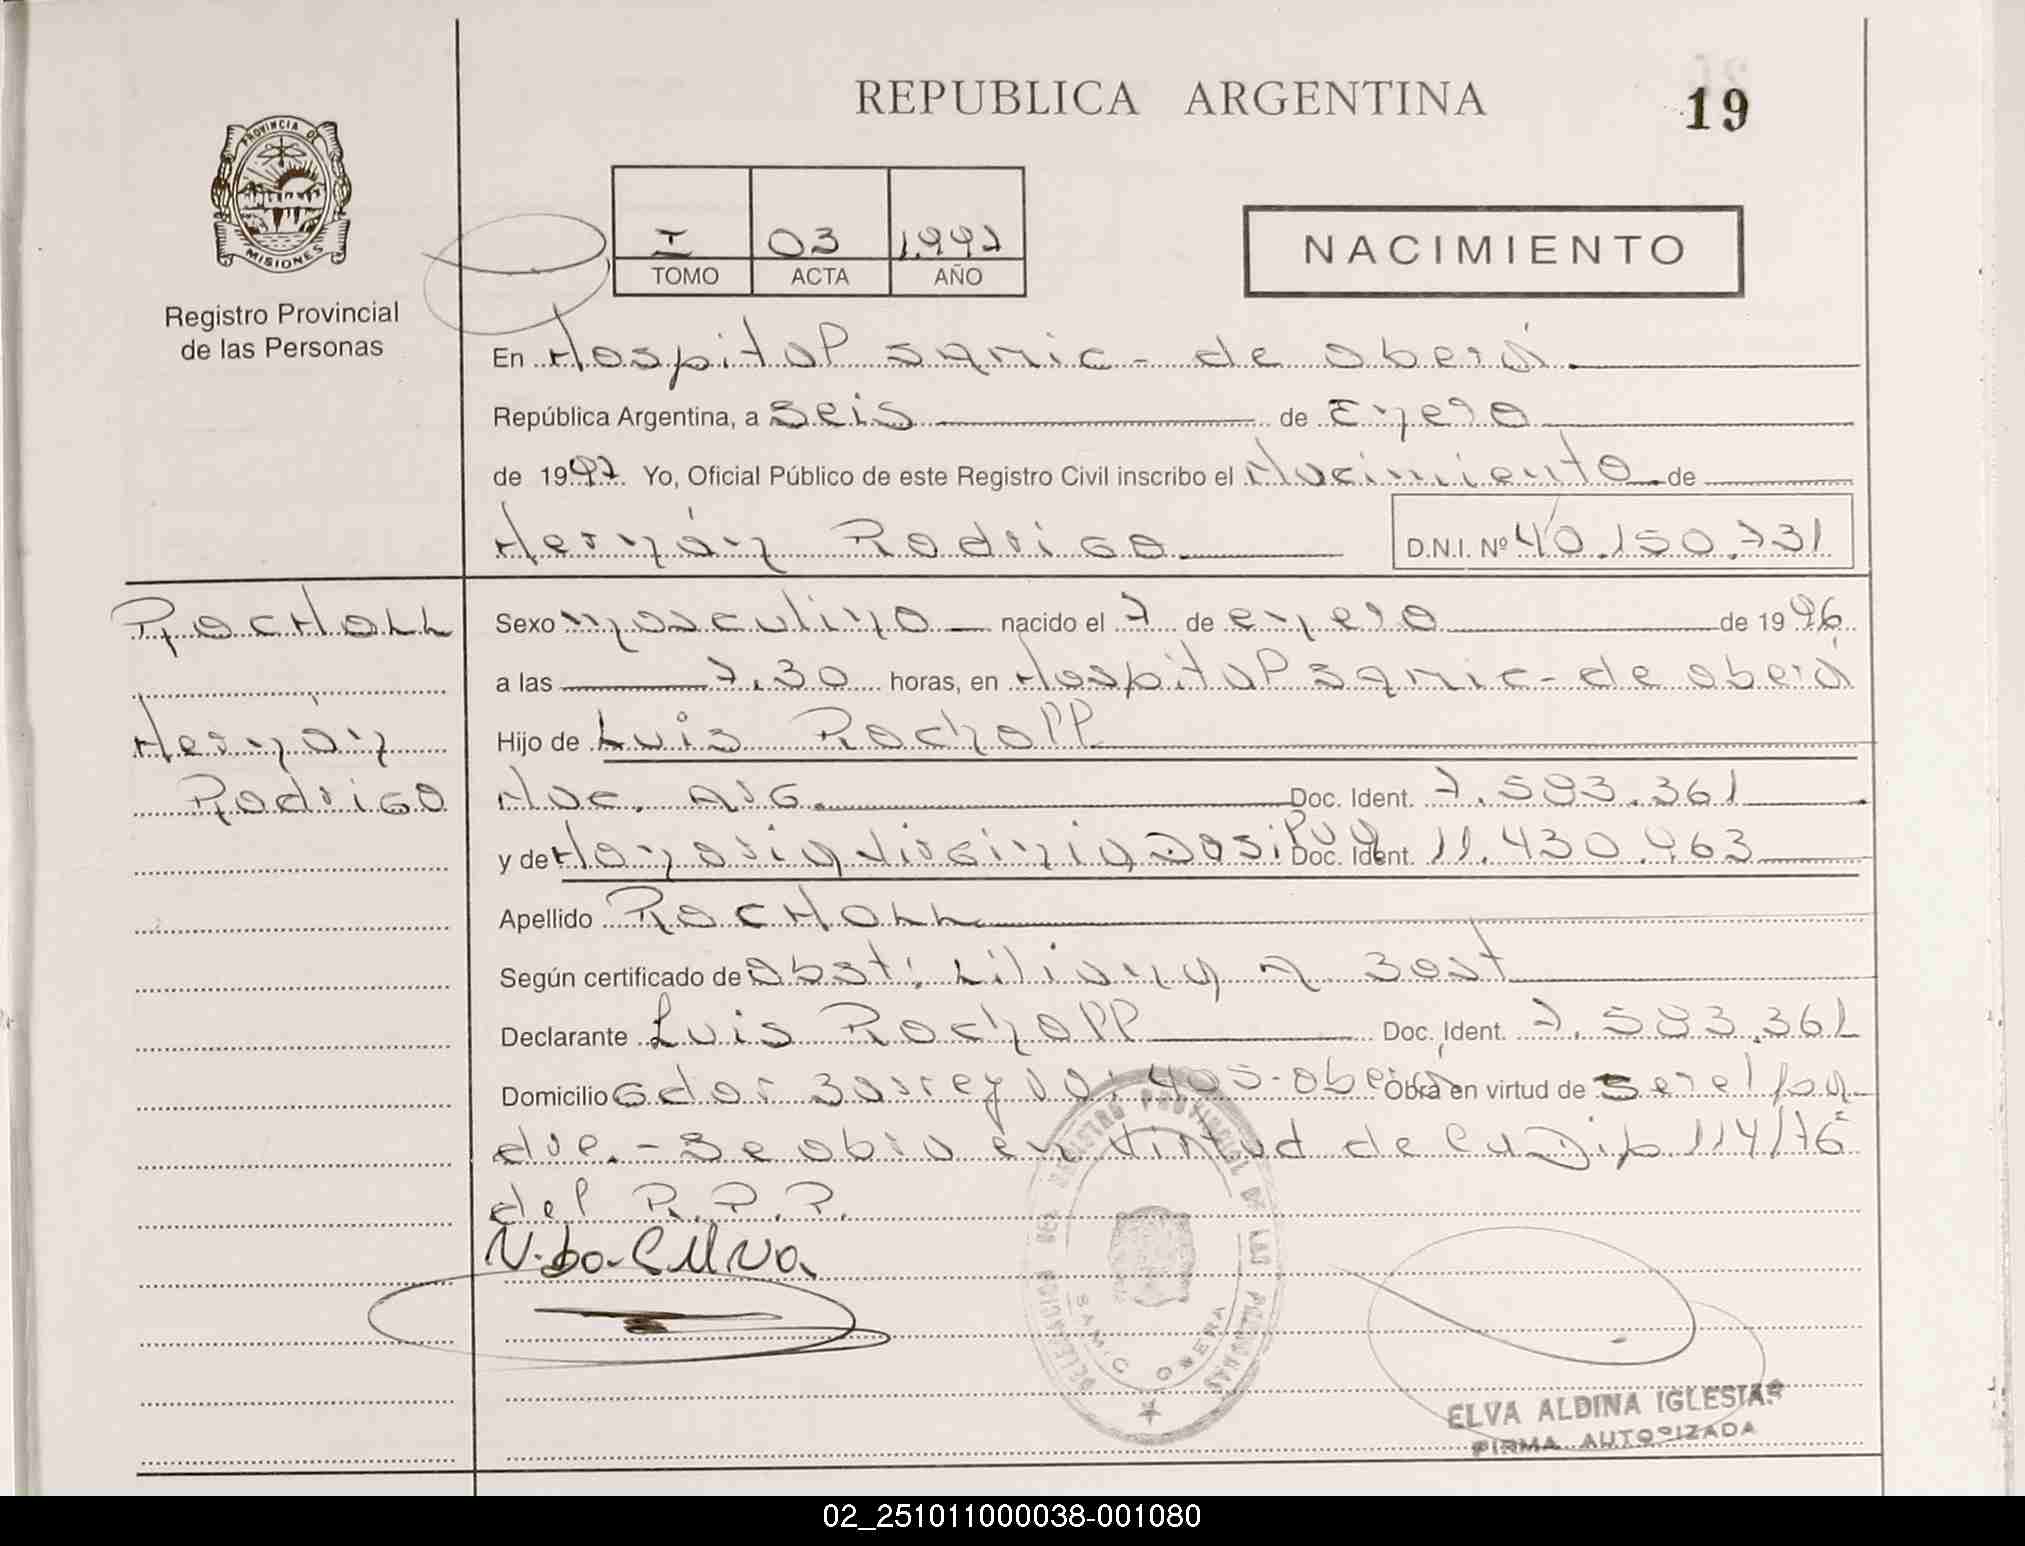 REPUBLICA ARGENTINA
19
PROVINCIA DE
MISIONES
Registro Provincial
de las Personas
I 03 1.997
TOMO ACTA AÑO
NACIMIENTO
En Hospital Samic - de Oberá
República Argentina, a Seis de Enero
de 1997. Yo, Oficial Público de este Registro Civil inscribo el Nacimiento de
Hernán Rodrigo D.N.I. Nº 40.150.731
ROCHOLL
Hernán
Rodrigo
Sexo masculino nacido el 7 de enero de 1996
a las 7.30 horas, en Hospital Samic - de Oberá
Hijo de Luis Rocholl
Nac. Arg. Doc. Ident. 7.593.361
y de Doc. Ident. 11.430.463
Apellido ROCHOLL
Según certificado de Obst: Liliana
Declarante Luis Rocholl Doc. Ident. 7.593.361
Domicilio Gdor 405 - Oberá Obra en virtud de Ser el pa
dre. - Se obra en virtud de 114/76
del R.P.P.
DELEGACION DEL REGISTRO PROVINCIAL DE LAS PERSONAS
SAMIC OBERA
ELVA ALDINA IGLESIAS
FIRMA AUTORIZADA
02_251011000038-001080